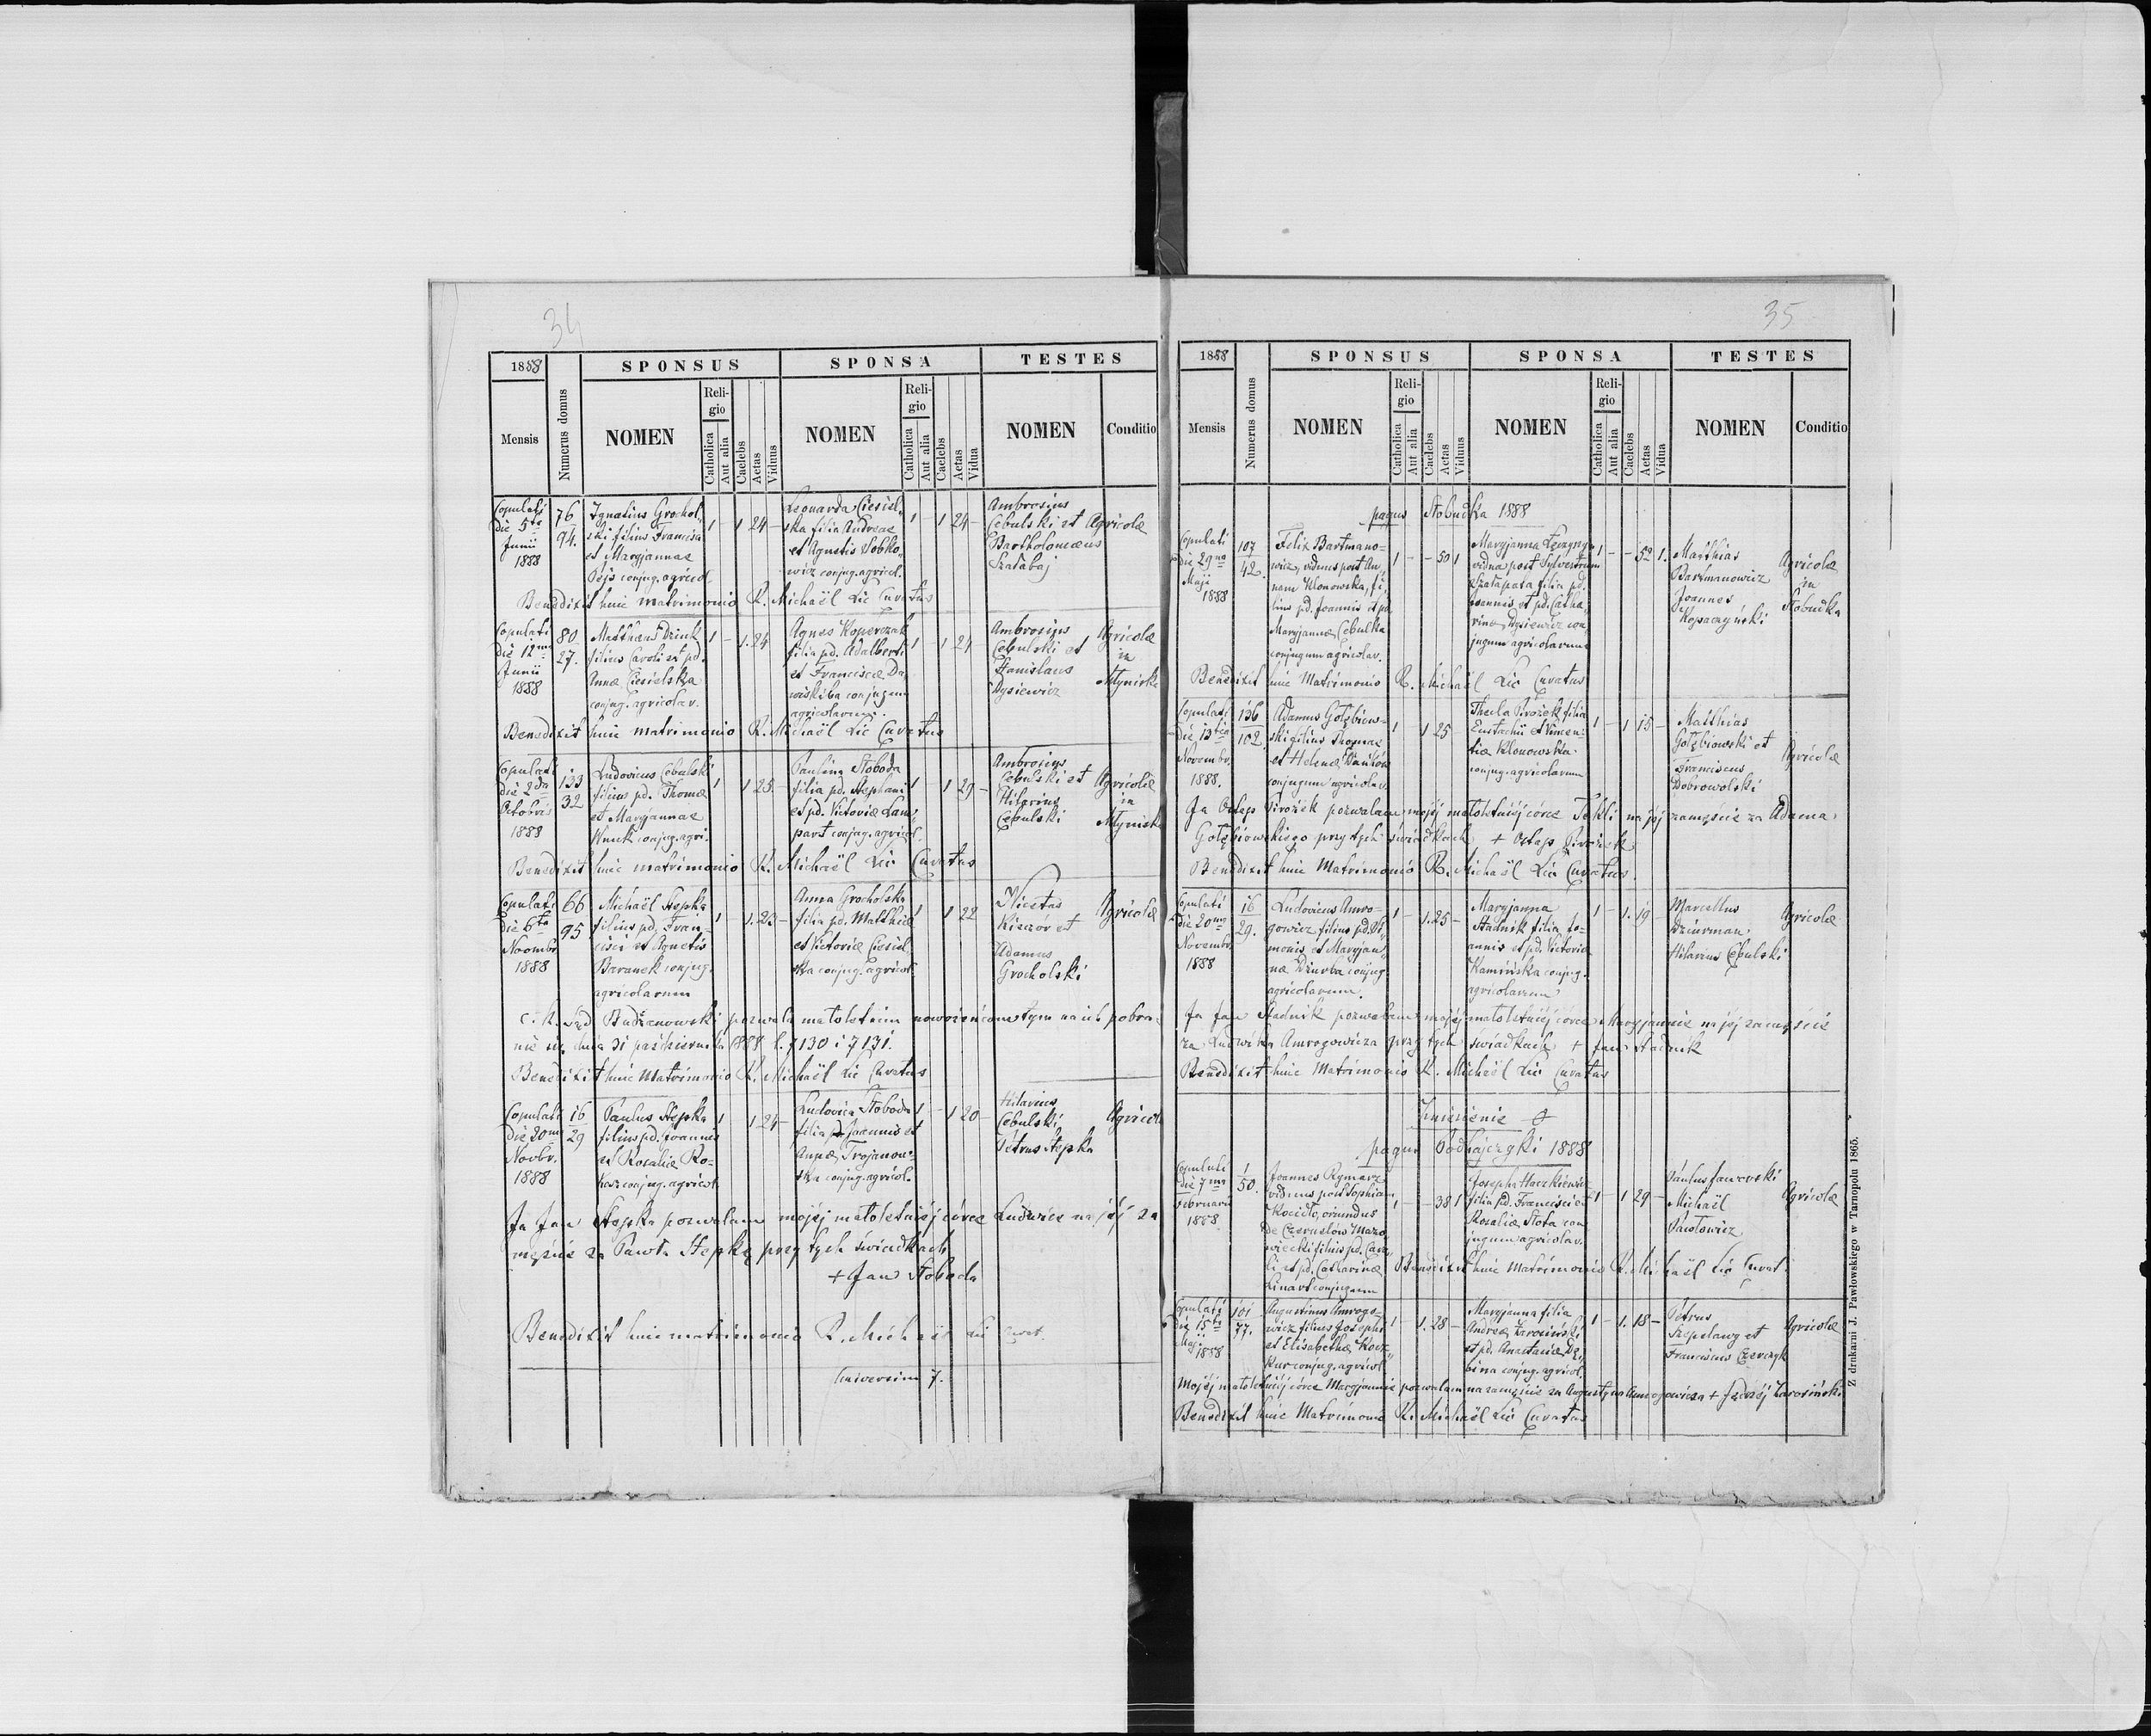 34
1888
Numerus domus
SPONSUS
SPONSA
TESTES
Mensis
NOMEN
Religio
Catholica
Aut alia
Caelebs
Aetas
Viduus
NOMEN
Religio
Catholica
Aut alia
Caelebs
Aetas
Vidua
NOMEN
Conditio
Copulati
die 5ta
Junii
1888
76
94.
Ignatius Grochol-
ski filius Francisci
et Maryjannae
conjug. agricol.
1 1 24 -
Leonarda Ciesiel-
ska filia Andreae
et Agnetis Sobko-
wicz conjug. agricol.
1 1 24 -
Ambrosius
Cebulski et
Bartholomaeus
Szatabaj
Agricolae
Benedixit huic matrimonio R. Michaël Lic Curatus
Copulati
die 12ma
Junii
1888
80
27.
Matthaeus Dziuk
filius Caroli et pd.
Annae Ciesielska
conjug. agricolar.
1 - 1. 24
Agnes Koperczak
filia pd. Adalberti
et Franciscae Da-
conjugum
agricolarum.
1 1 24
Ambrosius
Cebulski et
Stanislaus
Dysiewicz
Agricolae
in
Młyniska
Benedixit huic matrimonio R. Michaël Lic Curatus
Copulati
die 2da
Octobris
1888
133
32
Ludovicus Cebulski
filius pd. Thomae
et Maryjannae
conjug. agri.
1 1 25 -
Paulina Słoboda
filia pd. Stephani
et pd. Victoriae Lam-
part conjug. agricol.
1 1 29 -
Ambrosius
Cebulski et
Hilarius
Cebulski
Agricolae
in
Młyniska
Benedixit huic matrimonio R. Michaël Lic Curatus
Copulati
die 6ta
Novembr.
1888
66
95
Michaël Stepka
filius pd. Fran-
cisci et Agnetis
Baranek conjug.
agricolarum
1 - 1. 23 -
Anna Grocholska
filia pd. Matthiae
et Victoriae Ciesiel-
ska conjug. agricol.
1 1 22
Nicetas
et
Adamus
Grocholski
Agricolae
c. k. Sąd Budzanowski pozwala małoletnim nowożeńcom tym na ich pobra-
nie się, dnia 31 października 1888 l. 7130 i 7131.
Benedixit huic Matrimonio R. Michaël Lic Curatus
Copulati
die 20ma
Novbr.
1888
16
29
Paulus Stepka
filius pd. Joannis
et Rosaliae Ro-
conjug. agricol.
1 1 24 -
Ludovica Słoboda
filia pd. Joannis et
Annae Trojanow-
ska conjug. agricol.
1 - 1 20 -
Hilarius
Cebulski,
Petrus Stepka
Agricol
Ja Jan Stepka pozwalam mojej małoletniej córce Ludwice na jej za
mężcie za Pawła Stepkę przy tych świadkach
+ Jan Słoboda
Benedixit huic matrimonio R. Michaël Lic Curat.
Universim 7.
35
1888
Numerus domus
SPONSUS
SPONSA
TESTES
Mensis
NOMEN
Religio
Catholica
Aut alia
Caelebs
Aetas
Viduus
NOMEN
Religio
Catholica
Aut alia
Caelebs
Aetas
Vidua
NOMEN
Conditio
pagus Słobudka 1888
Copulati
die 29na
Maji
1888
107
42.
Felix Bartmano-
wicz, viduus post An-
nam Klonowska, fi-
lius pd. Joannis et pd.
Maryjannae Cebulka
conjugum agricolar.
1 - - 50 1
Maryjanna
vidua post Sylvestrum
filia pd.
Joannis et pd. Catha-
rinae Dysiewicz con-
jugum agricolarum
1 - - 52 1.
Matthias
Bartmanowicz
Joannes
Kopaczyński
Agricolae
in
Słobudka
Benedixit huic Matrimonio R. Michaël Lic Curatus
Copulati
die 13tia
Novembr.
1888.
136
102.
Adamus Gołębiow-
ski filius Thomae
et Helenae
conjugum agricolar.
1 - 1 25 -
Thecla Pirożek filia
Eustachii et Vincen-
tiae Klonowska
conjug. agricolarum
1 - 1 15 -
Matthias
Gołębiowski et
Franciscus
Dobrowolski
Agricolae
Ja Ostap Pirożek pozwalam mojej małoletniej córce Tekli na jej zamężcie za Adama
Gołębiowskiego przy tych świadkach + Ostap Pirożek
Benedixit huic Matrimonio R. Michaël Lic Curatus
Copulati
die 20ma
Novembr.
1888
16
29.
Ludovicus Amro-
gowicz filius pd. Si-
monis et Maryjan-
nae Dziurba conjug.
agricolarum.
1 - 1. 25 -
Maryjanna
Stadnik filia Jo-
annis et pd. Victoriae
Kamińska conjug.
agricolarum
1 - 1. 19 -
Marcellus
Dziurman
Hilarius Cebulski
Agricolae
Ja Jan Stadnik pozwalam mojej małoletniej córce Maryjannie na jej zamężcie
za Ludwika Amrogowicza przy tych świadkach + Jan Stadnik
Benedixit huic Matrimonio R. Michaël Lic Curatus
pagus Podhajczyki 1888
Copulati
die 7ma
Februarii
1888
1
50.
Joannes Rymarz
viduus post Sophiam
Kocioło, oriundus
de Czernelów Mazo-
wiecki filius pd. Caro-
li et pd. Catharinae
Linart conjugum
1 - - 38 1
Josepha Haczkiewicz
filia pd. Francisci et
Rosaliae Słota con-
jugum agricolar.
1 1 29 -
Paulus Janowski
Michaël
Pawłowicz
Agricolae
Benedixit huic Matrimonio R. Michaël Lic Curat.
Copulati
die 15ta
Maji
1888
101
77.
Augustinus Amrogo-
wicz filius Josephi
et Elisabethae Kacz-
kur conjug. agricol.
1 - 1. 28 -
Maryjanna filia
Andreae Zarosiński
et pd. Anastasiae Dę-
bina conjug. agricol.
1 - 1. 18 -
Petrus
Szepelawy et
Franciscus Czerczyk
Agricolae
Mojej małoletniej córce Maryjannie pozwalam na zamężcie za Augustyna Amrogowicza + Jędrzej Zarosiński
Benedixit huic Matrimonio R. Michaël Lic Curatus
Z drukarni J. Pawłowskiego w Tarnopolu 1865.